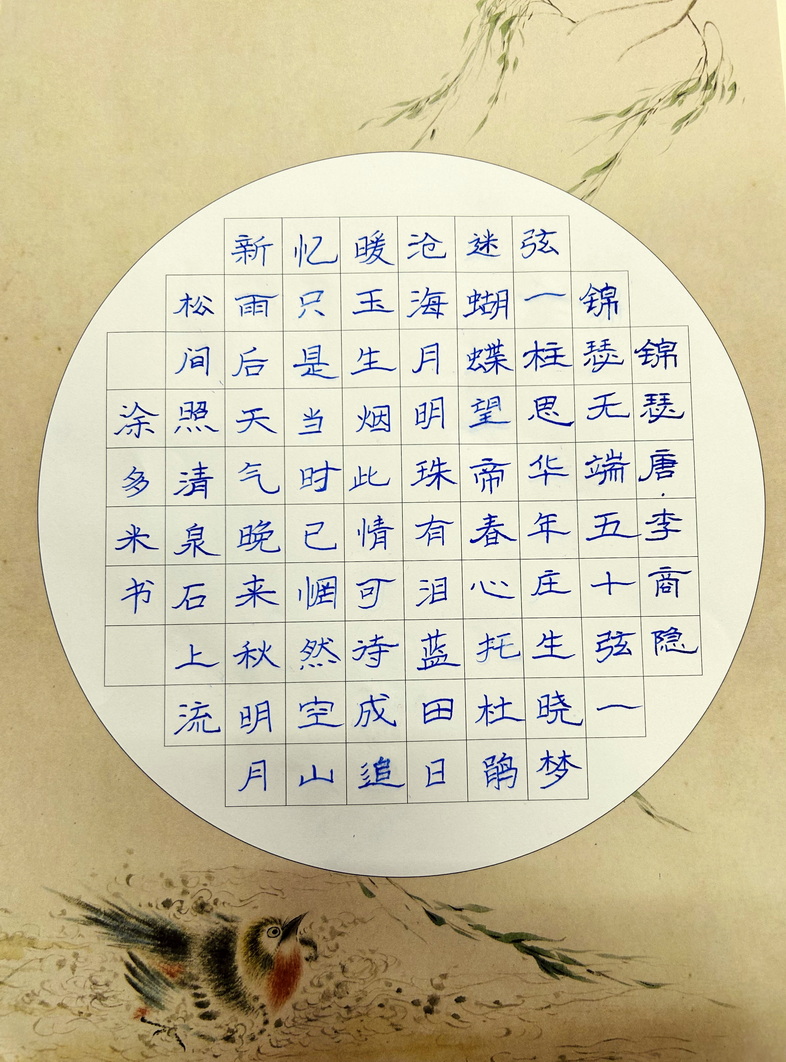 锦瑟唐·李商隐
锦瑟无端五十弦一
弦一柱思华年庄生晓梦
迷蝴蝶望帝春心托杜鹃
沧海月明珠有泪蓝田日
暖玉生烟此情可待成追
忆只是当时已惘然空山
新雨后天气晚来秋明月
松间照清泉石上流
涂多米书